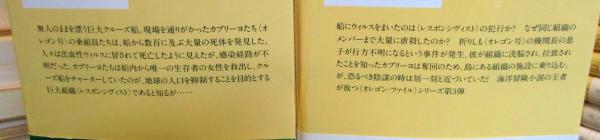 無人のままを漂う巨大クルーズ船。現場を通りがかったカブリーヨたち〈オ
レゴン号〉の乗組員たちは、船から数百に及ぶ大量の死体を発見した。
人々は出血性ウィルスに冒されて死亡したように見えたが、感染経路が不
明だった。カブリーヨたちは船内から唯一の生存者の女性を救出し、クル
ーズ船をチャーターしていたのが、地球の人口を抑制することを目的とする
巨大組織〈レスポンシヴィスト〉であると知るが……
船にウィルスをまいたのは〈レスポンシヴィスト〉の犯行か? なぜ同じ組織の
メンバーまで大量に虐殺したのか? 折りしも〈オレゴン号〉の機関長の息
子が行方不明になるという事件が発生。彼が組織に洗脳され、拉致され
たことを知ったカブリーヨは奪回のため、島にある組織の施設に乗り込む。
が、恐るべき陰謀の時は刻一刻と近づいていた! 海洋冒険小説の王者
が放つ〈オレゴン・ファイル〉シリーズ第3弾